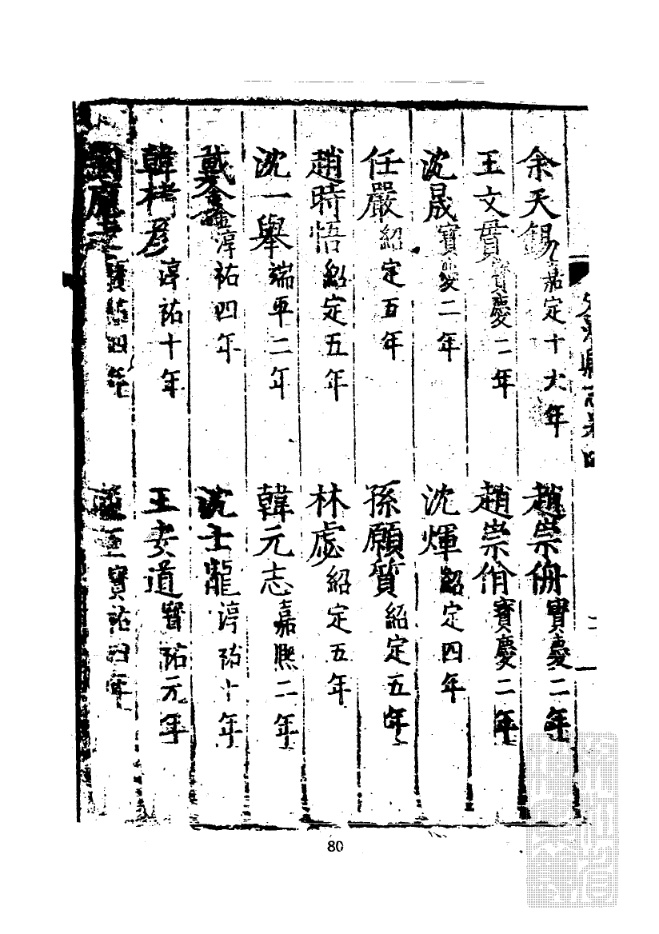 余天錫嘉定十六年
趙崇侑寶慶二年
王文貫寶慶二年
趙崇佾寶慶二年
沈晟寶慶二年
沈煇紹定四年
任嚴紹定五年
孫願質紹定五年
趙時悟紹定五年
林處紹定五年
沈一舉端平二年
韓元志嘉熙二年
戴鑫淳祐四年
沈士龍淳祐十年
韓桂彥淳祐十年
王安道寶祐元年
應之寶祐四年
寶祐四年
80